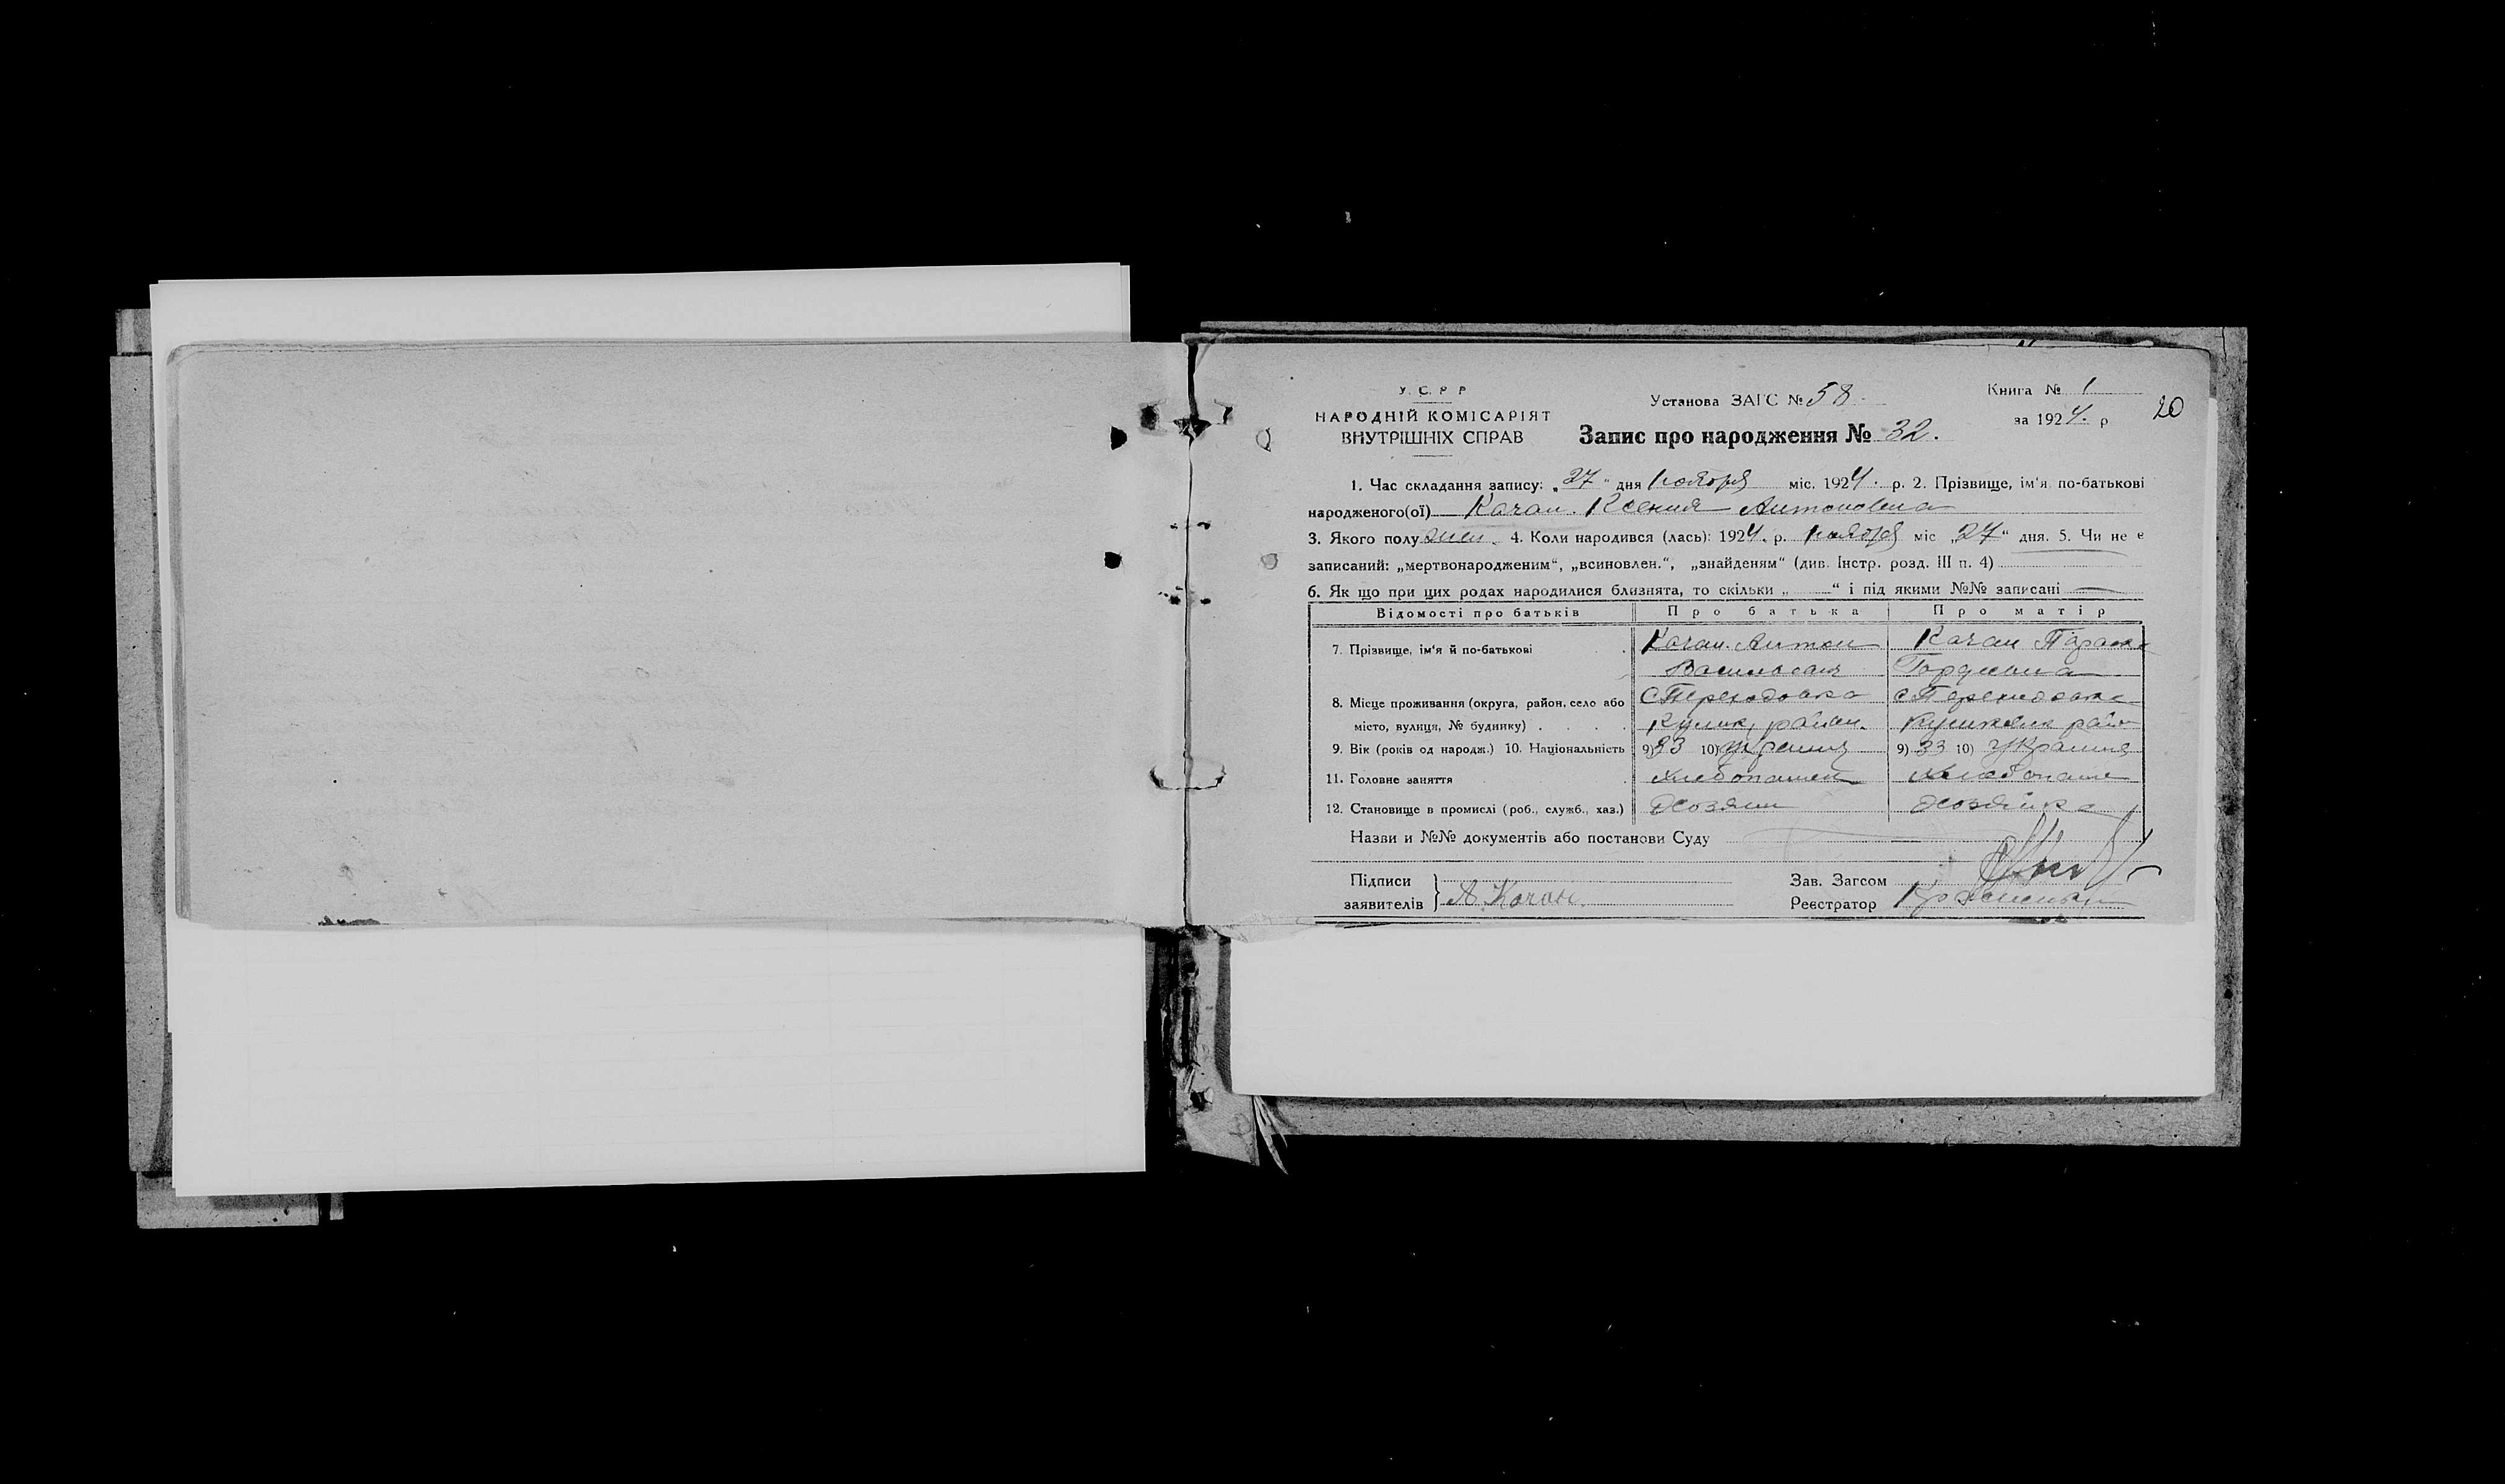 У. С. Р. Р
НАРОДНІЙ КОМІСАРІЯТ
ВНУТРІШНІХ СПРАВ
Установа ЗАГС № 58.
Запис про народження № 32.
Книга № 1
за 1924. р
20
1. Час складання запису: „27“ дня ноября міс. 1924. р. 2. Прізвище, ім'я по-батькові
народженого(ої) Качан. Ксения Антоновна
3. Якого полу жен. 4. Коли народився (лась): 1924. р. ноября міс „27“ дня. 5. Чи не є
записаний: „мертвонародженим“, „всиновлен.“, „знайденям“ (див. Інстр. розд. III п. 4)
6. Як що при цих родах народилися близнята, то скільки „ “ і під якими №№ записані
Відомості про батьків Про батька Про матір
7. Прізвище, ім'я й по-батькові Качан. Антон Качан
8. Місце проживання (округа, район, село або
місто, вулиця, № будинку) район.
9. Вік (років од народж.) 10. Національність 9) 33 10) 9) 33 10)
11. Головне заняття
12. Становище в промислі (роб., служб., хаз.) Хозяин Хозяйка
Назви и №№ документів або постанови Суду
Підписи
заявителів А. Качан.
Зав. Загсом
Реєстратор